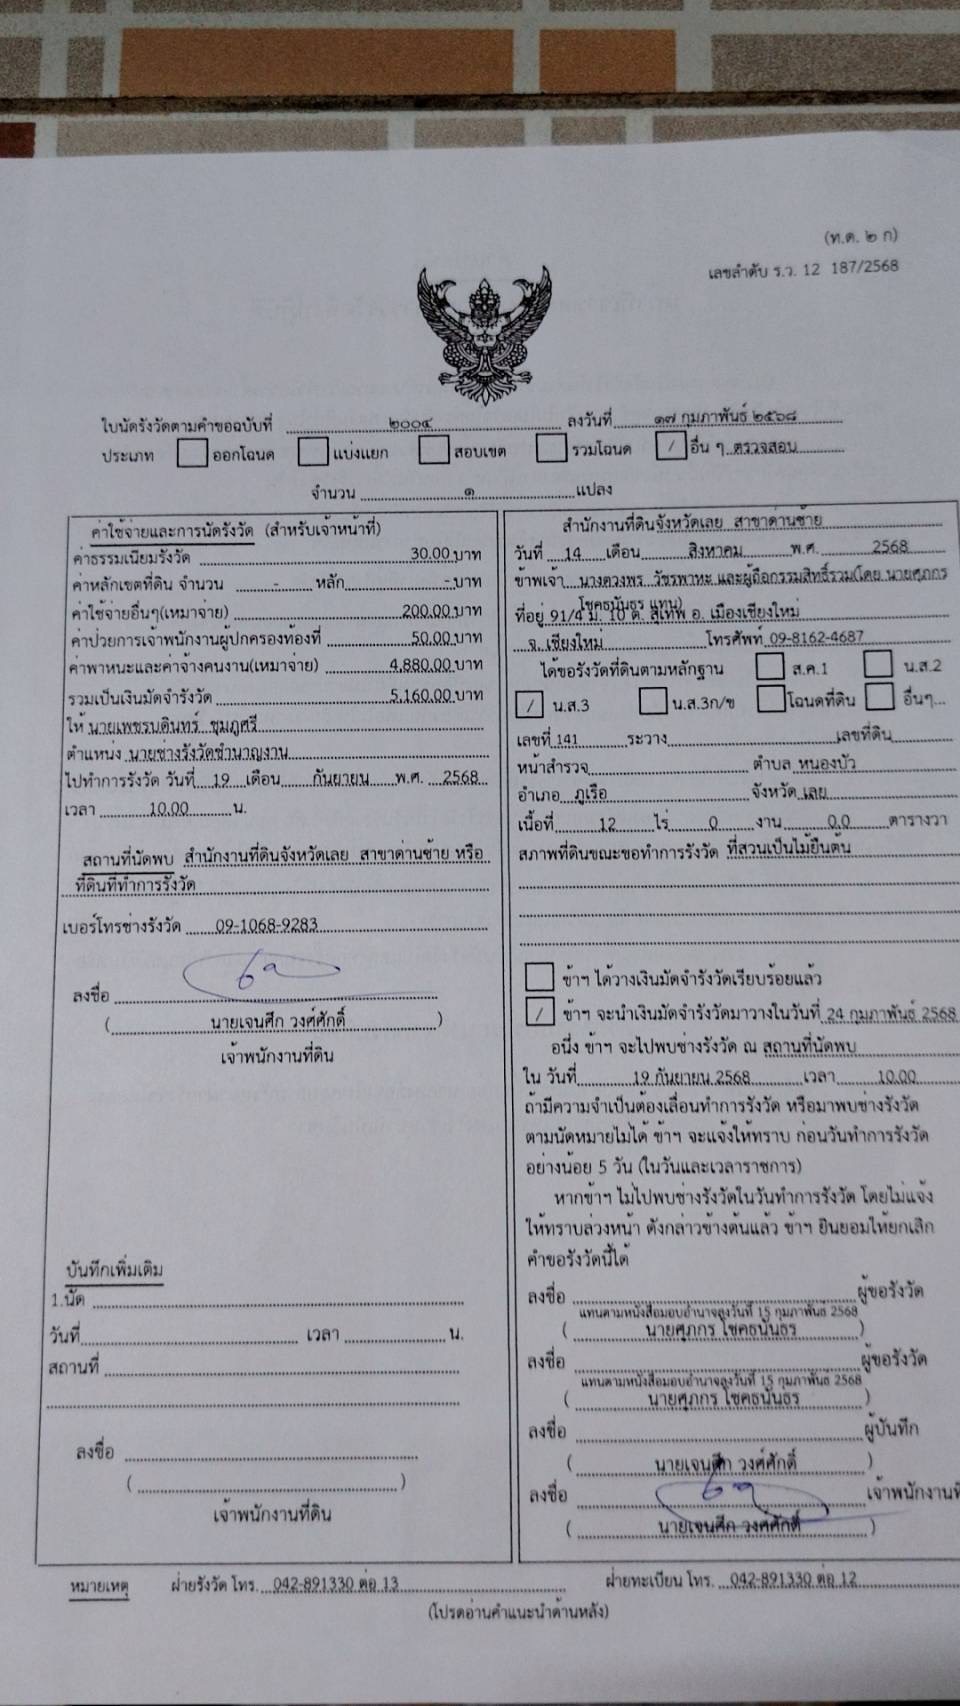 (ท.ด. ๒ ก)
เลขลำดับ ร.ว. 12 187/2568
ใบนัดรังวัดตามคำขอฉบับที่ ๒๐๐๔ ลงวันที่ ๑๗ กุมภาพันธ์ ๒๕๖๘
ประเภท ออกโฉนด แบ่งแยก สอบเขต รวมโฉนด / อื่น ๆ ตรวจสอบ
จำนวน ๑ แปลง
ค่าใช้จ่ายและการนัดรังวัด (สำหรับเจ้าหน้าที่)
ค่าธรรมเนียมรังวัด 30.00 บาท
ค่าหลักเขตที่ดิน จำนวน - หลัก - บาท
ค่าใช้จ่ายอื่นๆ(เหมาจ่าย) 200.00 บาท
ค่าป่วยการเจ้าพนักงานผู้ปกครองท้องที่ 50.00 บาท
ค่าพาหนะและค่าจ้างคนงาน(เหมาจ่าย) 4,880.00 บาท
รวมเป็นเงินมัดจำรังวัด 5,160.00 บาท
ให้ นายเพชรบดินทร์ ชุมภูศรี
ตำแหน่ง นายช่างรังวัดชำนาญงาน
ไปทำการรังวัด วันที่ 19 เดือน กันยายน พ.ศ. 2568
เวลา 10.00 น.
สถานที่นัดพบ สำนักงานที่ดินจังหวัดเลย สาขาด่านซ้าย หรือ
ที่ดินที่ทำการรังวัด
เบอร์โทรช่างรังวัด 09-1068-9283
ลงชื่อ
( นายเจนศึก วงศ์ศักดิ์ )
เจ้าพนักงานที่ดิน
บันทึกเพิ่มเติม
1.นัด
วันที่ เวลา น.
สถานที่
ลงชื่อ
( )
เจ้าพนักงานที่ดิน
สำนักงานที่ดินจังหวัดเลย สาขาด่านซ้าย
วันที่ 14 เดือน สิงหาคม พ.ศ. 2568
ข้าพเจ้า นางดวงพร วัชรพาหะ และผู้ถือกรรมสิทธิ์รวม(โดย นายศุภกร
โชคธนันธร แทน)
ที่อยู่ 91/4 ม. 10 ต. สุเทพ อ. เมืองเชียงใหม่
จ. เชียงใหม่ โทรศัพท์ 09-8162-4687
ได้ขอรังวัดที่ดินตามหลักฐาน ส.ค.1 น.ส.2
/ น.ส.3 น.ส.3ก/ข โฉนดที่ดิน อื่นๆ...
เลขที่ 141 ระวาง เลขที่ดิน
หน้าสำรวจ ตำบล หนองบัว
อำเภอ ภูเรือ จังหวัด เลย
เนื้อที่ 12 ไร่ 0 งาน 0.0 ตารางวา
สภาพที่ดินขณะขอทำการรังวัด ที่สวนเป็นไม้ยืนต้น
ข้าฯ ได้วางเงินมัดจำรังวัดเรียบร้อยแล้ว
/ ข้าฯ จะนำเงินมัดจำรังวัดมาวางในวันที่ 24 กุมภาพันธ์ 2568
อนึ่ง ข้าฯ จะไปพบช่างรังวัด ณ สถานที่นัดพบ
ใน วันที่ 19 กันยายน 2568 เวลา 10.00
ถ้ามีความจำเป็นต้องเลื่อนทำการรังวัด หรือมาพบช่างรังวัด
ตามนัดหมายไม่ได้ ข้าฯ จะแจ้งให้ทราบ ก่อนวันทำการรังวัด
อย่างน้อย 5 วัน (ในวันและเวลาราชการ)
หากข้าฯ ไม่ไปพบช่างรังวัดในวันทำการรังวัด โดยไม่แจ้ง
ให้ทราบล่วงหน้า ดังกล่าวข้างต้นแล้ว ข้าฯ ยินยอมให้ยกเลิก
คำขอรังวัดนี้ได้
ลงชื่อ ผู้ขอรังวัด
แทนตามหนังสือมอบอำนาจลงวันที่ 15 กุมภาพันธ์ 2568
( นายศุภกร โชคธนันธร )
ลงชื่อ ผู้ขอรังวัด
แทนตามหนังสือมอบอำนาจลงวันที่ 15 กุมภาพันธ์ 2568
( นายศุภกร โชคธนันธร )
ลงชื่อ ผู้บันทึก
( นายเจนศึก วงศ์ศักดิ์ )
ลงชื่อ เจ้าพนักงานที่
( นายเจนศึก วงศ์ศักดิ์ )
หมายเหตุ ฝ่ายรังวัด โทร. 042-891330 ต่อ 13 ฝ่ายทะเบียน โทร. 042-891330 ต่อ 12
(โปรดอ่านคำแนะนำด้านหลัง)